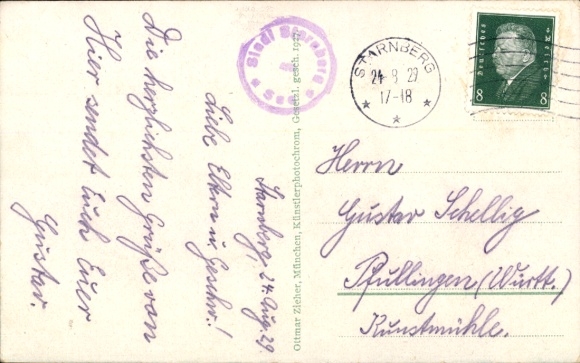 Starnberg, 24. Aug. 29.
Liebe Eltern u. Geschw.!
Die herzlichsten Grüße von
Hier sendet Euch Euer
Gustav
Stadt Starnberg
See
Ottmar Zieher, München, Künstlerphotochrom, Gesetzl. gesch. 1927
STARNBERG
24 8 29
17-18
Deutsches Reich
8 8
Herrn
Gustav Schellig
Pfullingen (Württ.)
Kunstmühle.